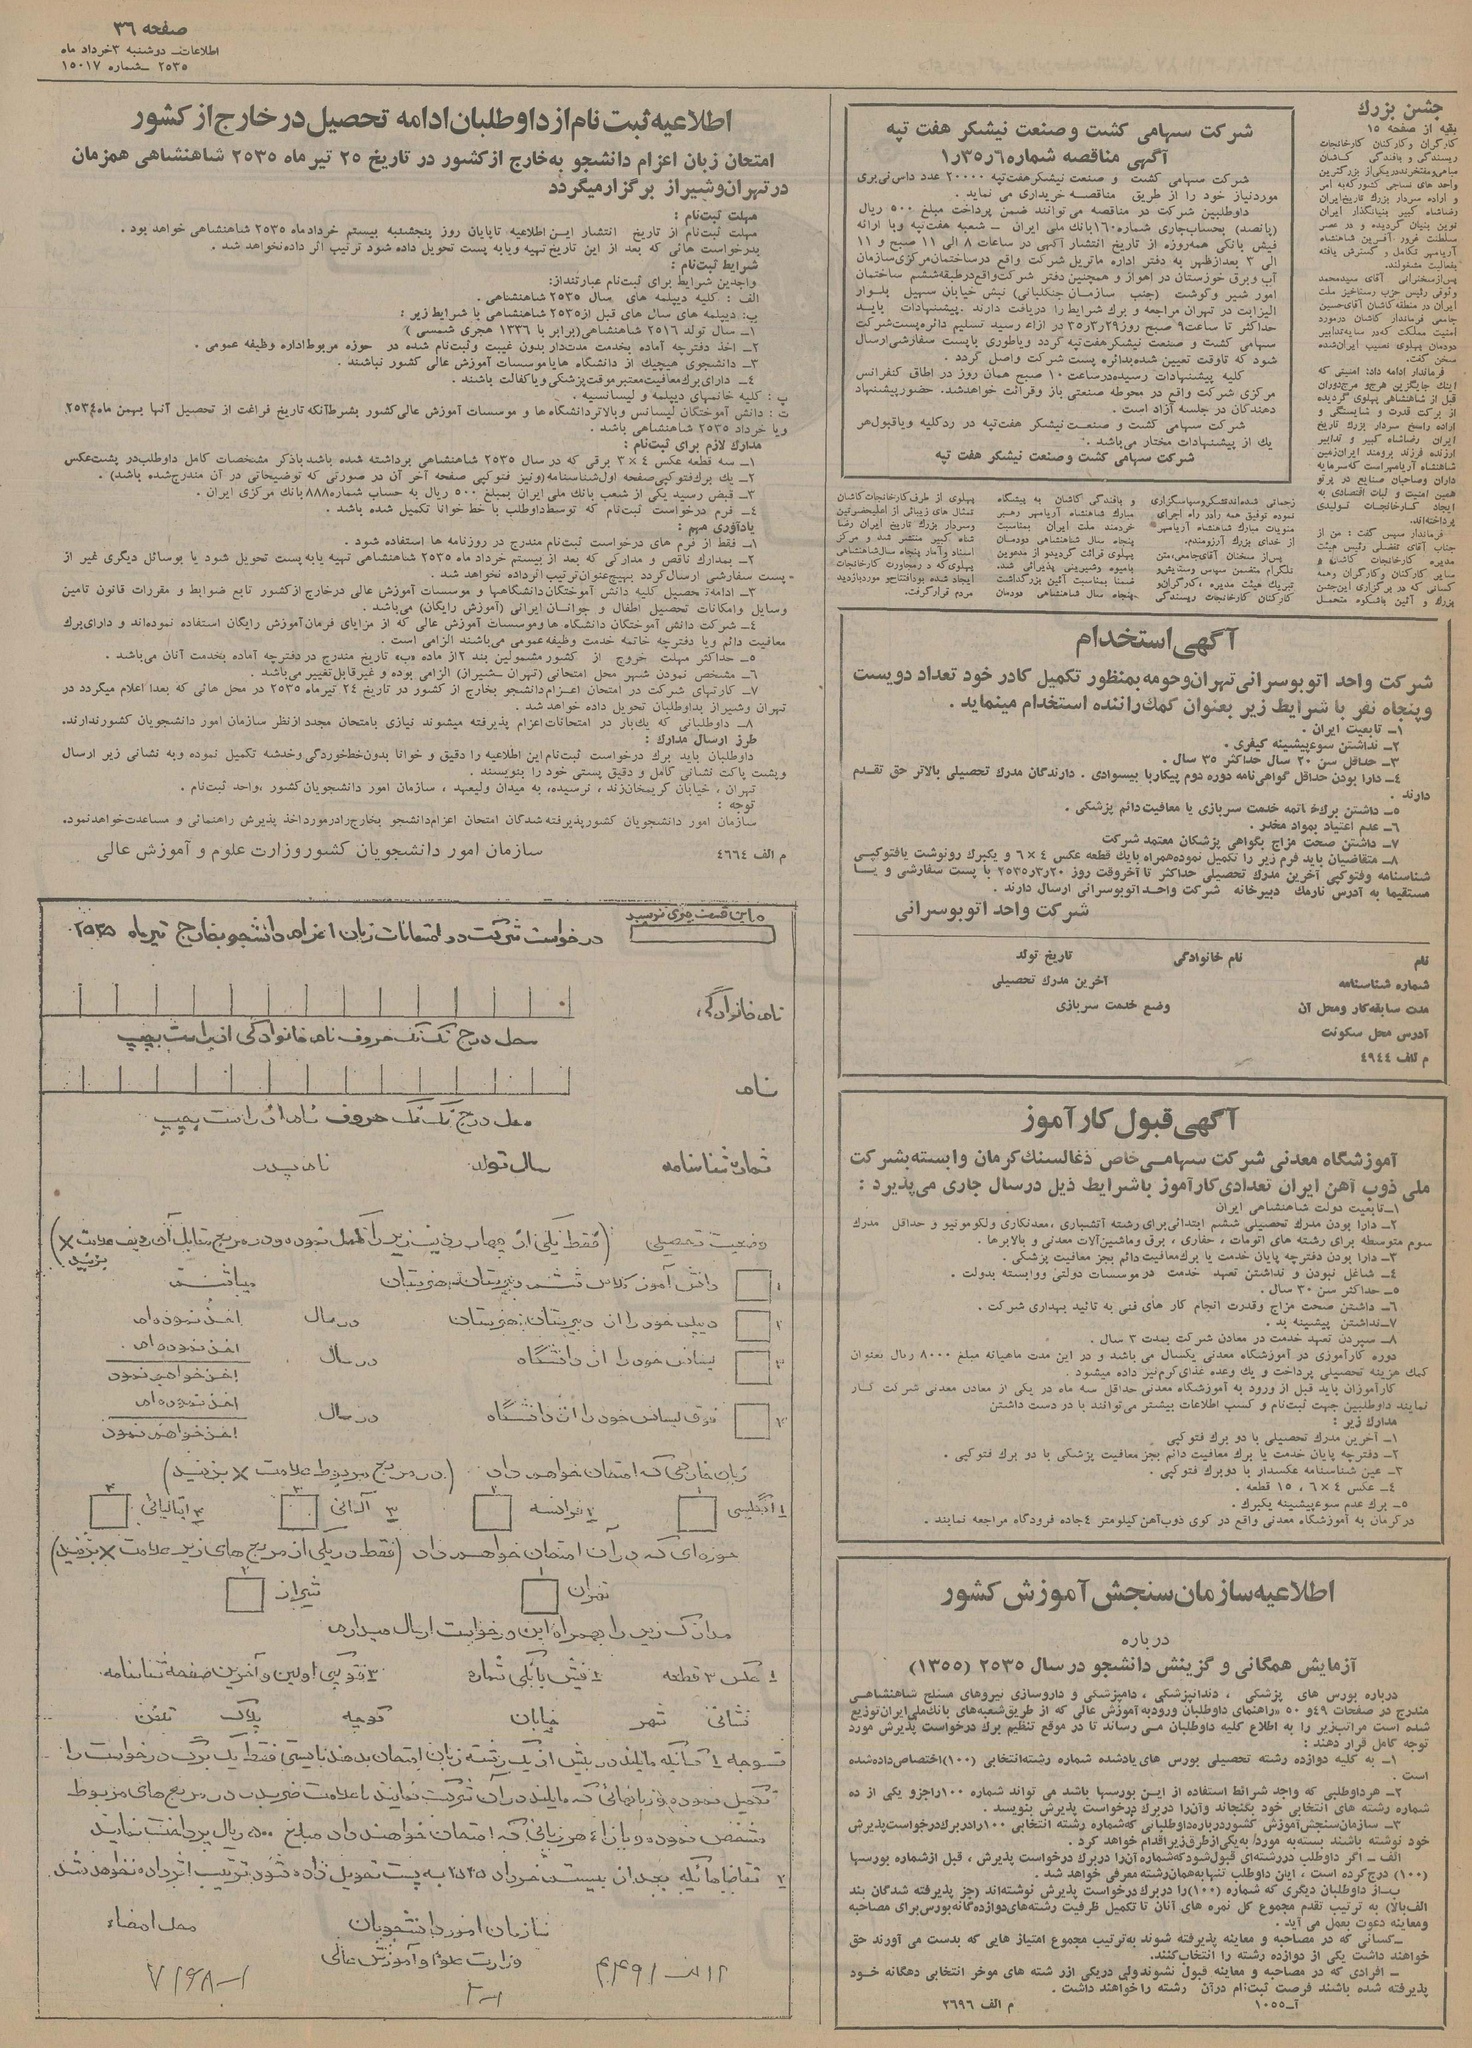 صفحه ۳۶
اطلاعات ـ دوشنبه ۳ خرداد ماه
۲۵۳۵ ـ شماره ۱۵۰۱۷
جشن بزرك
بقیه از صفحه ۱۵
کارگران وکارکنان کارخانجات
ریسندگی و بافندگی کاشان
مباهی‌ومفتخرنددریکی‌از بزرگترین
واحد های نساجی کشورکه‌به امر
و اراده سردار بزرك تاریخ‌ایران
رضاشاه کبیر بنیانگذار ایران
نوین بنیان گردیده و در عصر
سلطنت غرور آفرین شاهنشاه
آریامهر تکامل و گسترش یافته
بفعالیت مشغولند.
پس‌ازسخنرانی آقای سیدمحمد
وثوقی رئیس حزب رستاخیز ملت
ایران در منطقه‌کاشان آقای‌حسین
جامعی فرماندار کاشان درمورد
امنیت مملکت که‌در سایه‌تدابیر
دودمان پهلوی نصیب ایران‌شده
سخن گفت.
فرماندار ادامه داد: امنیتی که
اینك جایگزین هرج‌و مرج‌دوران
قبل از شاهنشاهی پهلوی گردیده
از برکت قدرت و شایستگی و
اراده راسخ سردار بزرك تاریخ
ایران رضاشاه کبیر و تدابیر
ارزنده فرزند برومند ایران‌زمین
شاهنشاه آریامهراست که‌سرمایه
داران وصاحبان صنایع در پرتو
همین امنیت و ثبات اقتصادی به
ایجاد کارخانجات تولیدی
پرداخته‌اند.
فرماندار سپس گفت : من از
جناب آقای تفضلی رئیس هیئت
مدیره کارخانجات کاشان و
سایر کارکنان وکارگران وهمه
کسانی که در برگزاری این‌جشن
بزرك و آئین باشکوه متحمل
زحماتی شده‌اندتشکروسپاسگزاری
نموده توفیق همه رادر راه اجرای
منویات مبارك شاهنشاه آریامهر
از خدای بزرك آرزومندم.
پس‌از سخنان آقای‌جامعی،متن
تلگرام متضمن سپاس وستایش‌و
تبریك هیئت مدیره ،کارگران‌و
کارکنان کارخانجات ریسندگی
و بافندگی کاشان به پیشگاه
مبارك شاهنشاه آریامهر رهبر
خردمند ملت ایران بمناسبت
پنجاه سال شاهنشاهی دودمان
پهلوی قرائت گردیدو از مدعوین
بامیوه وشیرینی پذیرائی شد.
ضمنا بمناسبت آئین بزرگداشت
پنجاه سال شاهنشاهی دودمان
پهلوی از طرف‌کارخانجات‌کاشان
تمثال های زیبائی از اعلیحضرتین
وسردار بزرك تاریخ ایران رضا
شاه کبیر منتشر شد و مرکز
اسناد وآمار پنجاه سال‌شاهنشاهی
پهلوی‌که در مجاورت کارخانجات
ایجاد شده بودافتتاح‌و موردبازدید
مردم قرارگرفت.
شرکت سهامی کشت وصنعت نیشکر هفت تپه
آگهی مناقصه شماره ۱ر۳۵ر۶
شرکت سهامی کشت و صنعت نیشکرهفت‌تپه ۲۰۰۰۰ عدد داس نی‌بری
موردنیاز خود را از طریق مناقصه خریداری می نماید .
داوطلبین شرکت در مناقصه می‌توانند ضمن پرداخت مبلغ ۵۰۰ ریال
(پانصد) بحساب‌جاری شماره ۱۶۰بانك ملی ایران ـ شعبه هفت‌تپه وبا ارائه
فیش بانکی همه‌روزه از تاریخ انتشار آگهی در ساعات ۸ الی ۱۱ صبح و ۱۱
الی ۳ بعدازظهر به دفتر اداره ماتریل شرکت واقع درساختمان‌مرکزی‌سازمان
آب وبرق خوزستان در اهواز و همچنین دفتر شرکت‌واقع‌درطبقه‌ششم ساختمان
امور شیر وگوشت (جنب سازمان جنگلبانی) نبش خیابان سهیل بلوار
الیزابت در تهران مراجعه و برك شرایط را دریافت دارند .پیشنهادات باید
حداکثر تا ساعت۹ صبح روز ۲۹ر۳ر۳۵ در ازاء رسید تسلیم دائره‌پست‌شرکت
سهامی کشت و صنعت نیشکرهفت‌تپه گردد ویاطوری باپست سفارشی‌ارسال
شود که تاوقت تعیین شده‌بدائره پست شرکت واصل گردد .
کلیه پیشنهادات رسیده‌درساعت ۱۰ صبح همان روز در اطاق کنفرانس
مرکزی شرکت واقع در محوطه صنعتی باز وقرائت خواهدشد. حضورپیشنهاد
دهندگان در جلسه آزاد است .
شرکت سهامی کشت و صنعت نیشکر هفت‌تپه در ردکلیه ویاقبول‌هر
یك از پیشنهادات مختار می‌باشد .
شرکت سهامی کشت وصنعت نیشکر هفت تپه
آگهی استخدام
شرکت واحد اتوبوسرانی‌تهران‌وحومه‌بمنظور تکمیل کادر خود تعداد دویست
وپنجاه نفر با شرایط زیر بعنوان کمك‌راننده استخدام مینماید .
۱ـ تابعیت ایران .
۲ـ نداشتن سوءپیشینه کیفری .
۳ـ حداقل سن ۲۰ سال حداکثر ۳۵ سال .
۴ـ دارا بودن حداقل گواهی‌نامه دوره دوم پیکاربا بیسوادی . دارندگان مدرك تحصیلی بالاتر حق تقدم
دارند .
۵ـ داشتن برك‌خاتمه خدمت سربازی یا معافیت‌دائم پزشکی .
۶ـ عدم اعتیاد بمواد مخدر .
۷ـ داشتن صحت مزاج بگواهی پزشکان معتمد شرکت
۸ـ متقاضیان باید فرم زیر را تکمیل نموده‌همراه بایك قطعه عکس ۴ × ۶ و یکبرك رونوشت یافتوکپی
شناسنامه وفتوکپی آخرین مدرك تحصیلی حداکثر تاآخروقت روز ۲۰ر۳ر۲۵۳۵ با پست سفارشی و یا
مستقیما به آدرس نارمك دبیرخانه شرکت واحداتوبوسرانی ارسال دارند .
شرکت واحد اتوبوسرانی
نام نام خانوادگی تاریخ تولد
شماره شناسنامه آخرین مدرك تحصیلی
مدت سابقه‌کار ومحل آن وضع خدمت سربازی
آدرس محل سکونت
م الف ۴۹۴۴
آگهی قبول کارآموز
آموزشگاه معدنی شرکت سهامی خاص ذغالسنك‌کرمان وابسته بشرکت
ملی ذوب آهن ایران تعدادی‌کارآموز باشرایط ذیل درسال جاری می‌پذیرد :
۱ـ تابعیت دولت شاهنشاهی ایران
۲ـ دارا بودن مدرك تحصیلی ششم ابتدائی‌برای رشته آتشباری ،معدنکاری ولکوموتیو و حداقل مدرك
سوم متوسطه برای رشته های اتومات ، حفاری ، برق وماشین‌آلات معدنی و بالابرها .
۳ـ دارا بودن دفترچه پایان خدمت یا برك‌معافیت دائم بجز معافیت پزشکی .
۴ـ شاغل نبودن و نداشتن تعهد خدمت درموسسات دولتی ووابسته بدولت .
۵ـ حداکثر سن ۳۰ سال .
۶ـ داشتن صحت مزاج وقدرت انجام کار های فنی به تائید بهداری شرکت .
۷ـ نداشتن پیشینه بد .
۸ـ سپردن تعهد خدمت در معادن شرکت بمدت ۳ سال .
دوره کارآموزی در آموزشگاه معدنی یکسال می باشد و در این مدت ماهیانه مبلغ ۸۰۰۰ ریال بعنوان
کمك هزینه تحصیلی پرداخت و یك وعده غذای‌گرم‌نیز داده میشود .
کارآموزان باید قبل از ورود به آموزشگاه معدنی حداقل سه ماه در یکی از معادن معدنی شرکت کار
نمایند داوطلبین جهت ثبت‌نام و کسب اطلاعات بیشتر می‌توانند با در دست داشتن
مدارك زیر :
۱ـ آخرین مدرك تحصیلی با دو برك فتوکپی
۲ـ دفترچه پایان خدمت یا برك معافیت دائم بجز معافیت پزشکی با دو برك فتوکپی .
۳ـ عین شناسنامه عکسدار با دوبرك فتوکپی .
۴ـ عکس ۴ × ۶ ، ۱۵ قطعه .
۵ـ برك عدم سوءپیشینه یکبرك .
درکرمان به آموزشگاه معدنی واقع در کوی ذوب‌آهن‌کیلومتر ۴جاده فرودگاه مراجعه نمایند .
اطلاعیه سازمان سنجش آموزش کشور
درباره
آزمایش همگانی و گزینش دانشجو در سال ۲۵۳۵ (۱۳۵۵)
درباره بورس های پزشکی ، دندانپزشکی ، دامپزشکی و داروسازی نیروهای مسلح شاهنشاهی
مندرج در صفحات ۴۹و ۵۰ «راهنمای داوطلبان ورودبه‌آموزش عالی که از طریق‌شعبه‌های بانك‌ملی‌ایران‌توزیع
شده است مراتب‌زیر را به اطلاع کلیه داوطلبان می رساند تا در موقع تنظیم برك درخواست پذیرش مورد
توجه کامل قرار دهند :
۱ـ به کلیه دوازده رشته تحصیلی بورس های یادشده شماره رشته‌انتخابی (۱۰۰)اختصاص‌داده‌شده
است .
۲ـ هرداوطلبی که واجد شرائط استفاده از این بورسها باشد می تواند شماره ۱۰۰راجزو یکی از ده
شماره رشته های انتخابی خود بگنجاند وآن‌را دربرك درخواست پذیرش بنویسد .
۳ـ سازمان‌سنجش‌آموزش کشوردرباره‌داوطلبانی که‌شماره رشته انتخابی ۱۰۰رادربرك‌درخواست‌پذیرش
خود نوشته باشند بسته‌به مورد/ به‌یکی‌ازطرق‌زیراقدام خواهد کرد .
الف ـ اگر داوطلب دررشته‌ای قبول‌شودکه‌شماره آن‌را دربرك درخواست پذیرش ، قبل ازشماره بورسها
(۱۰۰) درج‌کرده است ، این داوطلب تنهابه‌همان‌رشته معرفی خواهد شد .
ب‌ـ‌از داوطلبان دیگری که شماره (۱۰۰)را دربرك‌درخواست پذیرش نوشته‌اند (جز پذیرفته شدگان بند
الف‌بالا) به ترتیب تقدم مجموع کل نمره های آنان تا تکمیل ظرفیت رشته‌های‌دوازده‌گانه‌بورس‌برای مصاحبه
ومعاینه دعوت بعمل می آید .
ـ‌کسانی که در مصاحبه و معاینه پذیرفته شوند به‌ترتیب مجموع امتیاز هایی که بدست می آورند حق
خواهند داشت یکی از دوازده رشته را انتخاب‌کنند.
ـ افرادی که در مصاحبه و معاینه قبول نشوندولی دریکی ازر شته های موخر انتخابی دهگانه خود
پذیرفته شده باشند فرصت ثبت‌نام درآن رشته راخواهند داشت .
آـ۱۰۵۵ م الف ۲۶۹۶
اطلاعیه ثبت نام از داوطلبان ادامه تحصیل در خارج از کشور
امتحان زبان اعزام دانشجو به‌خارج ازکشور در تاریخ ۲۵ تیر ماه ۲۵۳۵ شاهنشاهی همزمان
در تهران و شیراز برگزار میگردد
مهلت ثبت‌نام :
مهلت ثبت‌نام از تاریخ انتشار این اطلاعیه تاپایان روز پنجشنبه بیستم خردادماه ۲۵۳۵ شاهنشاهی خواهد بود .
بدرخواست هائی که بعد از این تاریخ تهیه ویابه پست تحویل داده شود ترتیب اثر داده‌نخواهد شد .
شرایط ثبت‌نام :
واجدین شرایط برای ثبت‌نام عبارتنداز:
الف : کلیه دیپلمه های سال ۲۵۳۵ شاهنشاهی .
ب: دیپلمه های سال های قبل از۲۵۳۵ شاهنشاهی با شرایط زیر :
۱ـ سال تولد ۲۵۱۶ شاهنشاهی(برابر با ۱۳۳۶ هجری شمسی )
۲ـ اخذ دفترچه آماده بخدمت مدت‌دار بدون غیبت وثبت‌نام شده در حوزه مربوط‌اداره وظیفه عمومی .
۳ـ دانشجوی هیچیك از دانشگاه هایاموسسات آموزش عالی کشور نباشند .
۴ـ دارای‌برك‌معافیت‌معتبرموقت‌پزشکی ویاکفالت باشند .
پ : کلیه خانمهای دیپلمه و لیسانسیه .
ت : دانش آموختگان لیسانس وبالاتردانشگاه ها و موسسات آموزش عالی‌کشور بشرط‌آنکه تاریخ فراغت از تحصیل آنها بهمن ماه۲۵۳۴
ویا خرداد ۲۵۳۵ شاهنشاهی باشد .
مدارك لازم برای ثبت‌نام :
۱ـ سه قطعه عکس ۴ × ۳ برقی که در سال ۲۵۳۵ شاهنشاهی برداشته شده باشد باذکر مشخصات کامل داوطلب‌در پشت‌عکس
۲ـ یك برك‌فتوکپی‌صفحه اول‌شناسنامه (ونیز فتوکپی صفحه آخر آن در صورتی که توضیحاتی در آن مندرج‌شده باشد) .
۳ـ قبض رسید یکی از شعب بانك ملی ایران بمبلغ ۵۰۰ ریال به حساب شماره۸۸۸بانك مرکزی ایران .
۴ـ فرم درخواست ثبت‌نام که توسط‌داوطلب با خط خوانا تکمیل شده باشد .
یادآوری مهم :
۱ـ فقط از فرم های درخواست ثبت‌نام مندرج در روزنامه ها استفاده شود .
۲ـ بمدارك ناقص و مدارکی که بعد از بیستم خرداد ماه ۲۵۳۵ شاهنشاهی تهیه یابه‌پست تحویل شود یا بوسائل دیگری غیر از
پست سفارشی ارسال‌گردد بهیچ‌عنوان‌ترتیب اثرداده نخواهد شد .
۳ـ ادامه تحصیل کلیه دانش آموختگان دانشگاهها و موسسات آموزش عالی درخارج از کشور تابع ضوابط و مقررات قانون تامین
وسایل وامکانات تحصیل اطفال و جوانان ایرانی (آموزش رایگان) می‌باشد .
۴ـ شرکت دانش آموختگان دانشگاه هاوموسسات آموزش عالی که از مزایای فرمان‌آموزش رایگان استفاده نموده‌اند و دارای‌برك
معافیت دائم ویا دفترچه خاتمه خدمت وظیفه‌عمومی می‌باشند الزامی است .
۵ـ حداکثر مهلت خروج از کشور مشمولین بند ۲از ماده «ب» تاریخ مندرج در دفترچه آماده بخدمت آنان می‌باشد .
۶ـ مشخص نمودن شهر محل امتحانی (تهران ـ شیراز) الزامی بوده و غیرقابل‌تغییر می‌باشد .
۷ـ کارتهای شرکت در امتحان اعزام‌دانشجو بخارج از کشور در تاریخ ۲۴ تیرماه ۲۵۳۵ در محل هائی که بعدا اعلام میگردد در
تهران وشیراز بداوطلبان تحویل داده خواهد شد .
۸ـ داوطلبانی که یك‌بار در امتحانات‌اعزام پذیرفته میشوند نیازی بامتحان مجدد ازنظر سازمان امور دانشجویان کشورندارند.
طرز ارسال مدارك :
داوطلبان باید برك درخواست ثبت‌نام‌این اطلاعیه را دقیق و خوانا بدون‌خط‌خوردگی وخدشه تکمیل نموده وبه نشانی زیر ارسال
وپشت پاکت نشانی کامل و دقیق پستی خود را بنویسند .
تهران ، خیابان کریمخان‌زند ، نرسیده، به میدان ولیعهد ، سازمان امور دانشجویان کشور ،واحد ثبت‌نام .
توجه :
سازمان امور دانشجویان کشورپذیرفته شدگان امتحان اعزام‌دانشجو بخارج‌رادرمورداخذ پذیرش راهنمائی و مساعدت‌خواهدنمود.
م الف ۴۶۶۴ سازمان امور دانشجویان کشور وزارت علوم و آموزش عالی
در این قسمت چیزی ننویسید
درخواست شرکت در امتحانات زبان اعزام دانشجو بخارج تیر ماه ۲۵۳۵
نام خانوادگی
محل درج تک تک حروف نام خانوادگی از راست بچپ
نام
محل درج تک تک حروف نام از راست بچپ
شماره شناسنامه سال تولد نام پدر
وضعیت تحصیلی (فقط یکی از چهار ردیف زیر را تکمیل نموده و در مربع مقابل آن ردیف علامت × بزنید)
۱ دانش آموز کلاس ششم دبیرستان، هنرستان میباشم
۲ دیپلم خود را از دبیرستان، هنرستان در سال اخذ نموده‌ام
۳ لیسانس خود را از دانشگاه در سال اخذ نموده‌ام . اخذ خواهم نمود
۴ فوق لیسانس خود را از دانشگاه در سال اخذ نموده‌ام اخذ خواهم نمود
زبان خارجی که امتحان خواهم داد (در مربع مربوط علامت × بزنید)
۱ انگلیسی ۱ ۲ فرانسه ۲ ۳ آلمانی ۳ ۴ ایتالیائی ۴
حوزه‌ای که در آن امتحان خواهم داد (فقط در یکی از مربع های زیر علامت × بزنید)
تهران ۱ شیراز ۲
مدارک زیر را بهمراه این درخواست ارسال میدارم
۱ عکس ۳ قطعه ۲ فیش بانکی شماره ۳ فتوکپی اولین و آخرین صفحه شناسنامه
نشانی شهر خیابان کوچه پلاک تلفن
توجه ۱ کسانیکه مایلند در بیش از یک رشته زبان امتحان بدهند بایستی فقط یک برگ درخواست را
تکمیل نموده و زبانهائی که مایلند در آن شرکت نمایند با علامت ضربدر در مربع های مربوط
مشخص نموده و بازاء هر زبانی که امتحان خواهند داد مبلغ ۵۰۰ ریال پرداخت نمایند
۲ تقاضاهائیکه بعد از بیستم خرداد ۲۵۳۵ به پست تحویل داده شود ترتیب اثر داده نخواهد شد.
سازمان امور دانشجویان محل امضاء
وزارت علوم و آموزش عالی